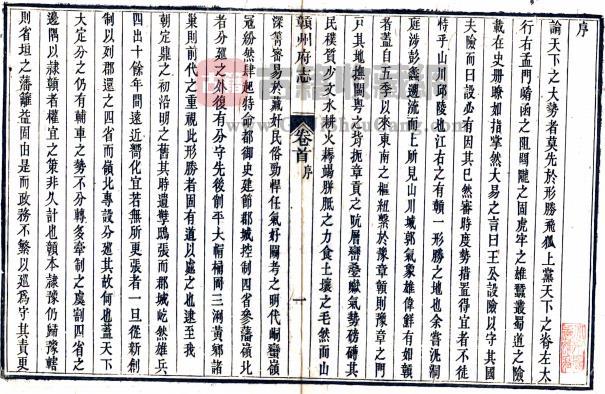 序
論天下之大勢者莫先於形勝飛狐上黨天下之脊左太
行右孟門崤函之阻關隴之固虎牢之雄蠶叢蜀道之險
載在史冊瞭如指掌然大易之言曰王公設險以守其國
夫險而曰設必有因其已然審時度勢措置得宜者不徒
恃乎山川邱陵也江右之有贛一形勝之地也余嘗汎洞
庭涉彭蠡遡流而上所見山川城郭氣象雄偉鮮有如贛
者蓋自五季以來東南之樞紐繫於豫章贛則豫章之門
戶其地撫閩粵之背扼章貢之吭層巒疊巘氣勢磅礴其
民樸質少文水耕火耨胼胝之力食土壤之毛然而山
贛州府志 卷首 序 一
深菁密易於藏奸民俗勁悍任氣好鬬考之明代峒蠻嶺
寇紛然肆起特命都御史建節郡城控制四省參藩嶺北
者分廵之外復有分守先後創平大帽桶岡三浰黃鄉諸
巢則前代之重視此形勝者固有道以處之也逮至我
朝定鼎之初沿明之舊其時遺孽鴟張而郡城屹然雄兵
四出十餘年間遠近嚮化宜若無所更張者一旦從新創
制以列郡還之四省而嶺北專設分廵其故何也蓋天下
大定分之仍有輔車之勢不分轉多牽制之虞割四省之
邊隅以隸贛者權宜之策非久計也贛本隸豫仍歸豫轄
則省垣之藩籬益固由是而政務不繁以廵為守其責更